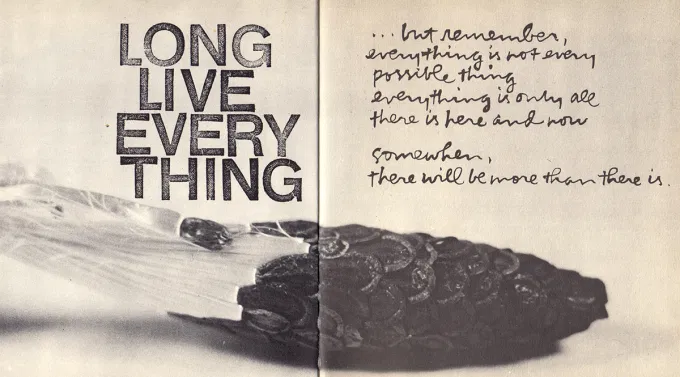 LONG
LIVE
EVERY
THING
... but remember,
everything is not every
possible thing
everything is only all
there is here and now
somewhen,
there will be more than there is.